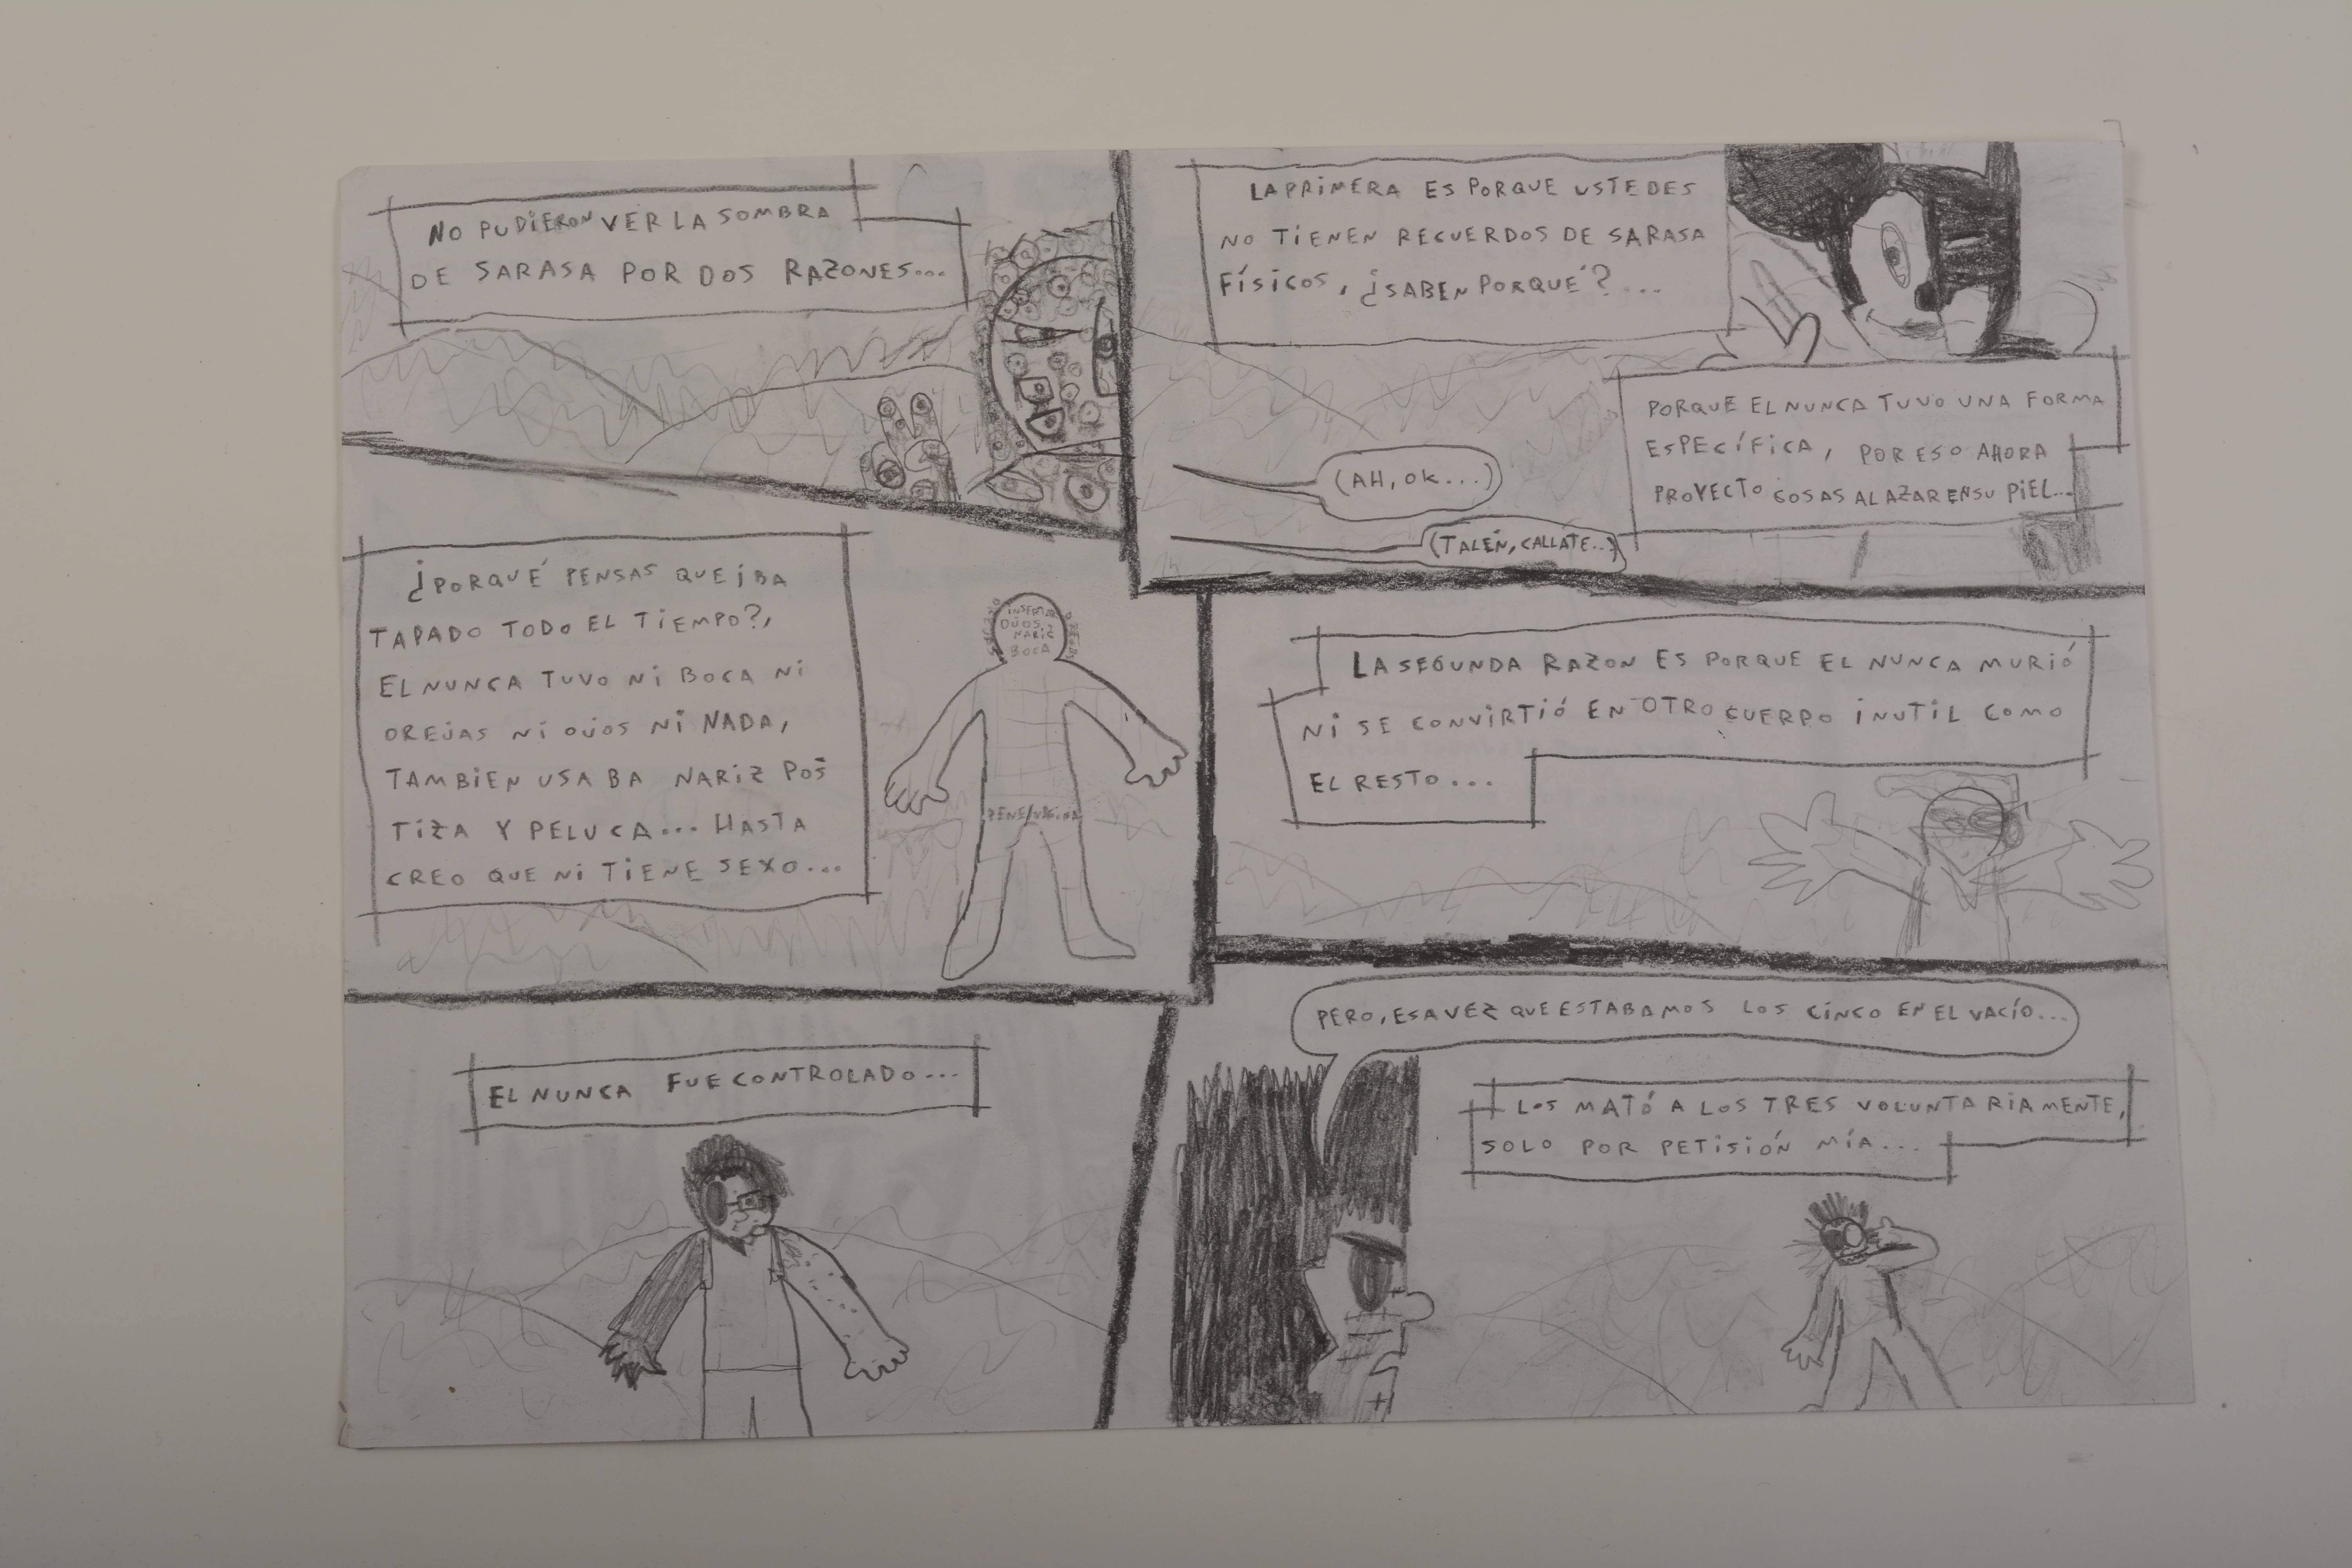 NO PUDiERON VER LA SOMBRA
DE SARASA POR DOS RAZONES...
LA PRiMERA ES PORQUE USTEDES
NO TiENEN RECUERDOS DE SARASA
FÍSiCOS, ¿SABEN PORQUÉ? ...
PORQUE EL NUNCA TUVO UNA FORMA
ESPECÍFiCA, POR ESO AHORA
PROYECTO COSAS AL AZAR EN SU PiEL...
(AH, OK...)
(TALEN, CALLATE...)
¿PORQUÉ PENSAS QUE iBA
TAPADO TODO EL TiEMPO?,
EL NUNCA TUVO Ni BOCA Ni
OREJAS Ni OJOS Ni NADA,
TAMBiEN USABA NARiZ POS
TiZA Y PELUCA... HASTA
CREO QUE Ni TiENE SEXO...
iNSERTAR
OJOS,
NARiZ
BOCA
PENE/VAGiNA
LA SEGUNDA RAZON ES PORQUE EL NUNCA MURiÓ
Ni SE CONViRTiÓ EN OTRO CUERPO iNUTiL COMO
EL RESTO...
EL NUNCA FUE CONTROLADO...
PERO, ESA VEZ QUE ESTABAMOS LOS CiNCO EN EL VACÍO...
LOS MATÓ A LOS TRES VOLUNTARiAMENTE,
SOLO POR PETiSiÓN MÍA...